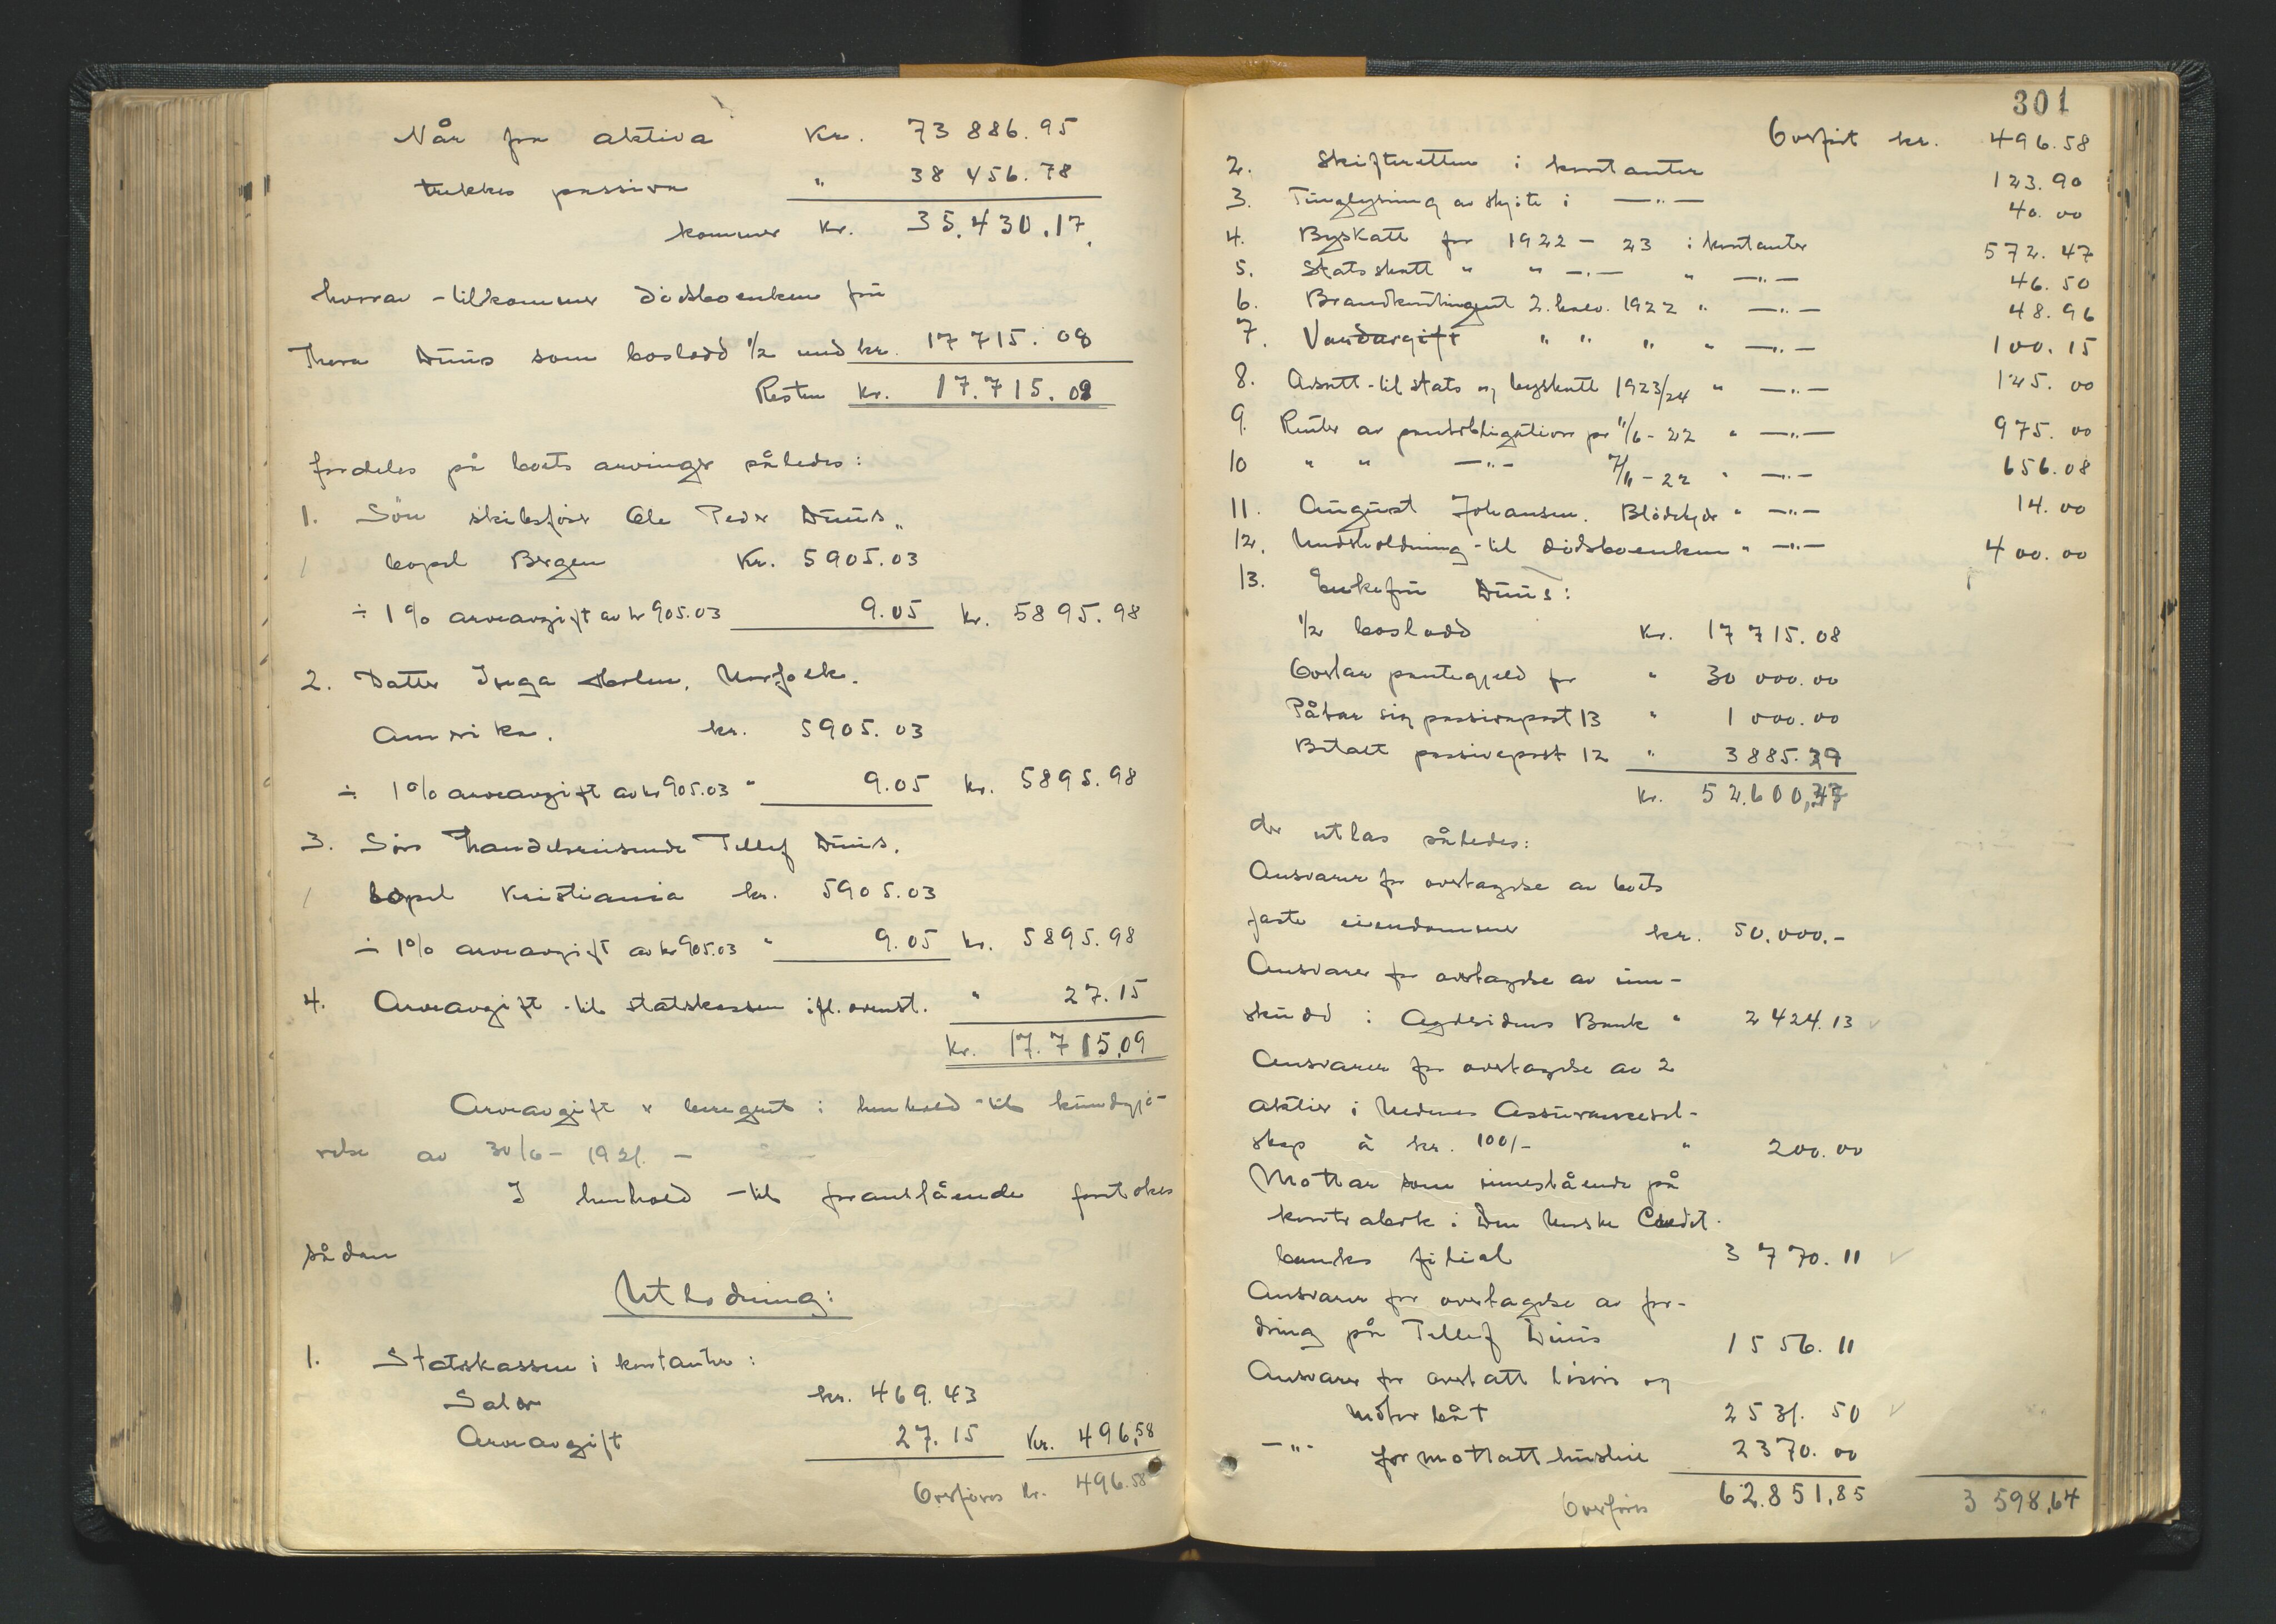 Når fra aktiva Kr. 73 886.95
trekkes passiva " 38 456.78
kommer Kr. 35.430.17.
hvorav tilkommer dødsboenken fru
Thora Duus som boslodd ½ med kr. 17 715.08
Resten Kr. 17.715.09
fordeles på boets arvinger således:
1. Søn skibsfører Ole Peder Duus,
bopel Bergen Kr. 5905.03
÷ 1% arveavgift av kr 905.03 9.05 kr. 5895.98
2. Datter Inga Holm, Norfolk.
Amerika. kr. 5905.03
÷ 1% arveavgift av kr 905.03 " 9.05 kr. 5895.98
3. Søn handelsreisende Tellef Duus.
bopel Kristiania kr. 5905.03
÷ 1% arveavgift av kr 905.03 " 9.05 kr. 5895.98
4. Arveavgift til statskassen ifl. ovenst. " 27.15
Kr. 17.715.09
Arveavgift er beregnet i henhold til kundgjø-
relse av 30/6 - 1921. -
I henhold til foranstående foretokes
sådan
Utlodning:
1. Statskassen i kontanter:
Salær kr. 469.43
Arveavgift 27.15 Kr. 496.58
Overføres kr. 496.58
301
Overført kr. 496.58
2. Skifteretten i kontanter 123.90
3. Tinglysning av skjøte i —"— 40.00
4. Byskatt for 1922 - 23 i kontanter 572.47
5. Statsskatt " " —"— " —"— 46.50
6. Brandkontingent 2. halv. 1922 " —"— 48.96
7. Vandavgift " " " " —"— 100.15
8. Avsatt til stats og byskatt 1923/24 " —"— 125.00
9. Renter av pantobligation pr 11/6 - 22 " —"— 975.00
10 " " —"— 7/11 - 22 " —"— 656.08
11. August Johansen. Blødekjær " —"— 14.00
12. Underholdning til dødsboenken " —"— 400.00
13. Enkefru Duus:
½ boslodd Kr. 17 715.08
Overtar pantegjeld for " 30 000.00
Påtar sig passivapost 13 " 1 000.00
Betalt passivapost 12 " 3885.39
Kr. 52.600,47
der utlas således:
Ansvarer for overtagelse av boets
faste eiendommer kr. 50.000.-
Ansvarer for overtagelse av inn-
skudd i Agdesidens Bank " 2424.13
Ansvarer for overtagelse av 2
aktier i Nedenes Assuransesel-
skap à kr. 100/- " 200.00
Mottar som innestående på
kontrabok i Den Norske Credit-
banks filial 3 770.11
Ansvarer for overtagelse av for-
dring på Tellef Duus 1556.11
Ansvarer for overtatt løsøre og
motorbåt 2531.50
—"— for mottatt husleie 2370.00
Overføres 62.851.85 3 598.64